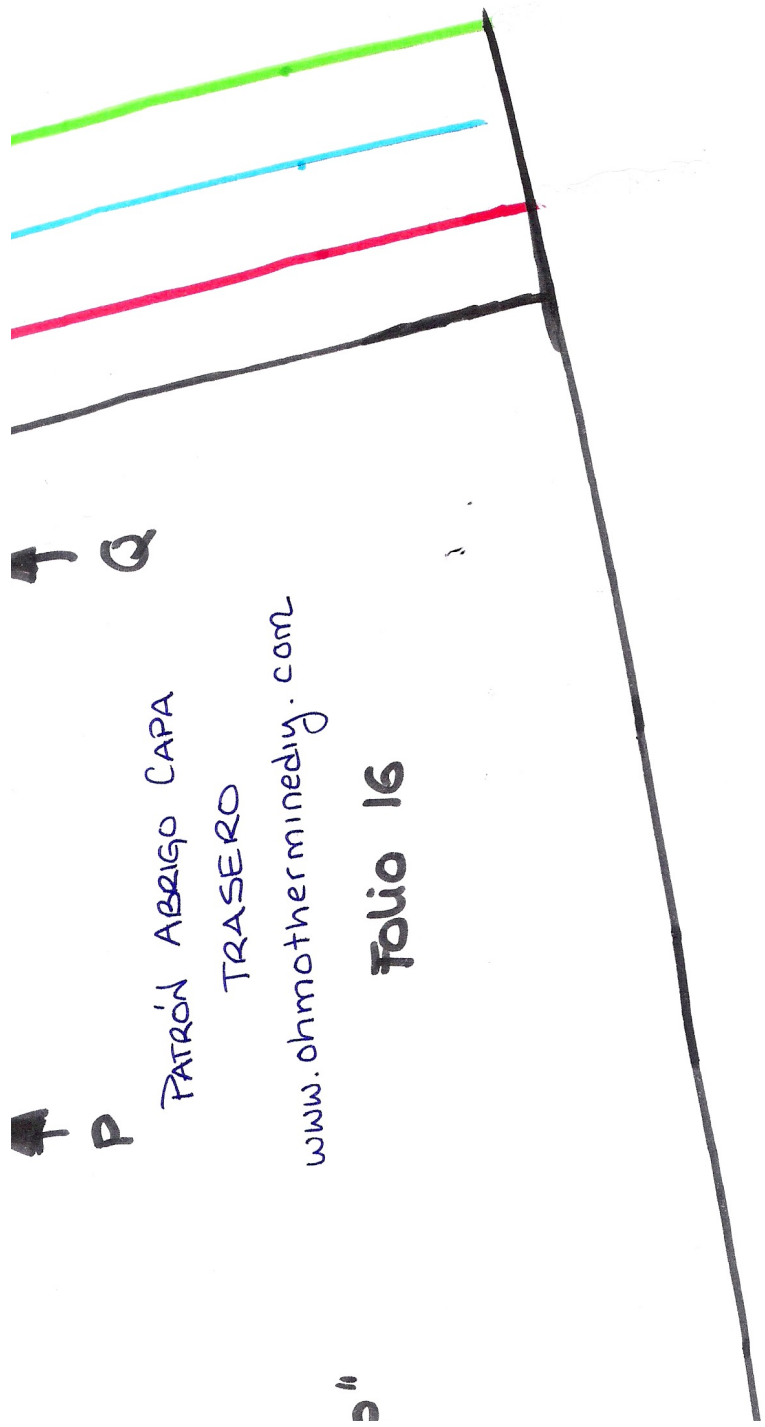 P
Q
PATRÓN ABRIGO CAPA
TRASERO
www.ohmotherminediy.com
Folio 16